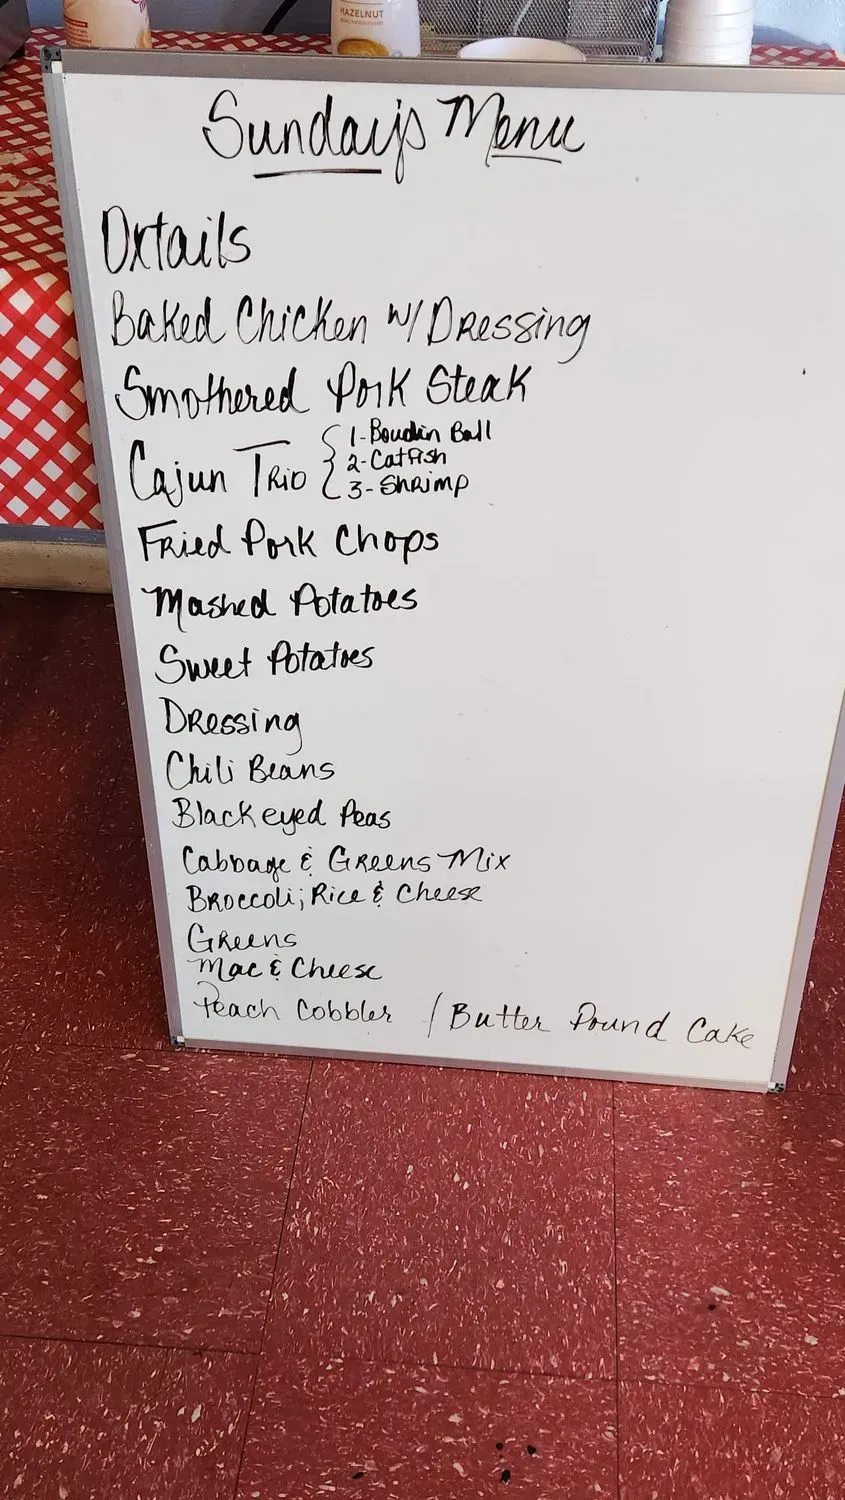 HAZELNUT
Sunday's Menu
Oxtails
Baked Chicken w/ Dressing
Smothered Pork Steak
Cajun Trio { 1-Boudin Ball
2-Catfish
3-Shrimp
Fried Pork Chops
Mashed Potatoes
Sweet Potatoes
Dressing
Chili Beans
Black eyed Peas
Cabbage & Greens Mix
Broccoli; Rice & Cheese
Greens
Mac & Cheese
Peach Cobbler / Butter Pound Cake